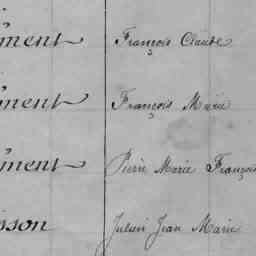 ment François Claude
ment François Marie
ment Pierre Marie François
sson Julien Jean Marie